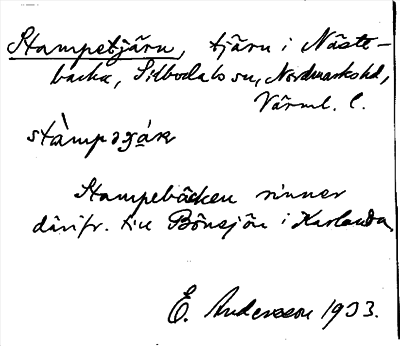 Stampetjärn, tjärn i Näste-
backa, Silbodals sn, Nordmarks hd,
Värml. l.
Stampebäcken rinner
därifr. till Bönsjön i Karlanda
E. Andersson 1933.